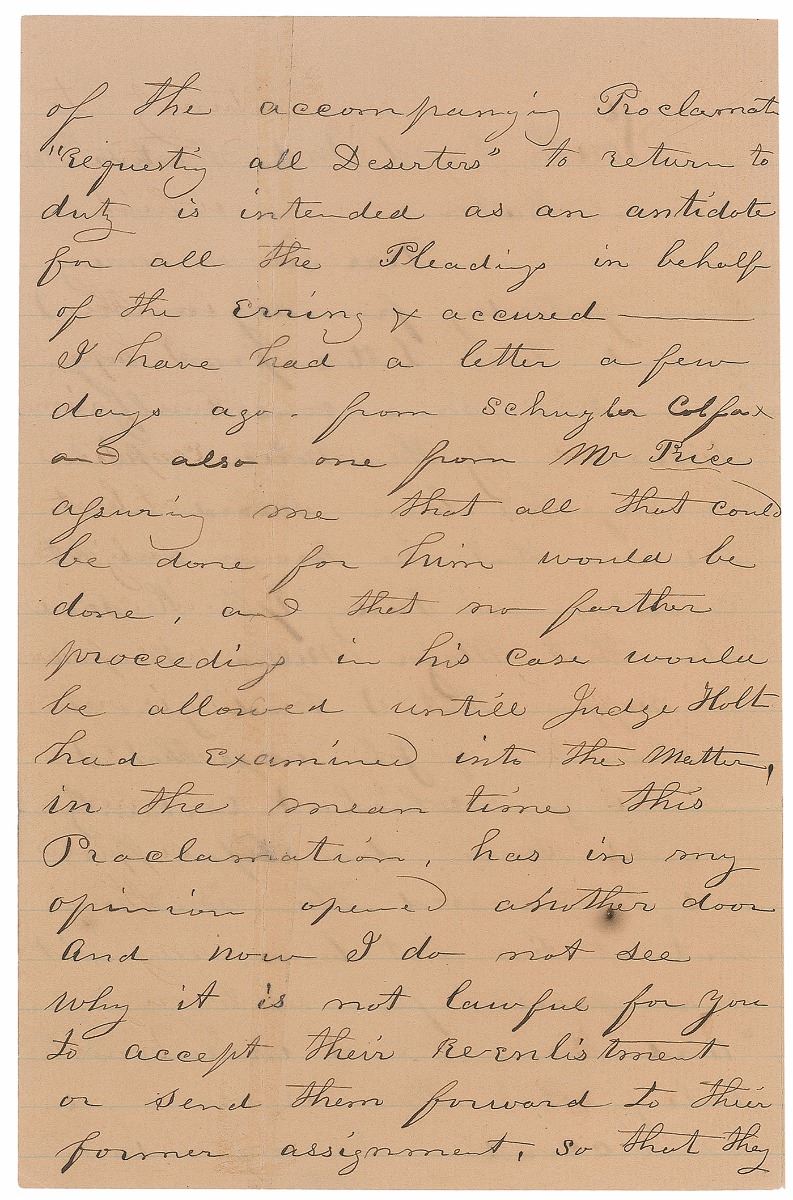 of the accompanying Proclamati
"Requesting all Deserters" to return to
duty is intended as an antidote
for all the Pleadings in behalf
of the Erring & accused ———
I have had a letter a few
days ago - from Schuyler Colfax
and also one from Mr Price
assuring me that all that could
be done for him would be
done, and that no farther
proceedings in his case would
be allowed untill Judge Holt
had Examined into the Matter,
in the mean time this
Proclamation, has in my
opinion opened another door
And now I do not see
why it is not lawful for you
to accept their Re-enlistment
or send them forward to their
former assignment, so that they